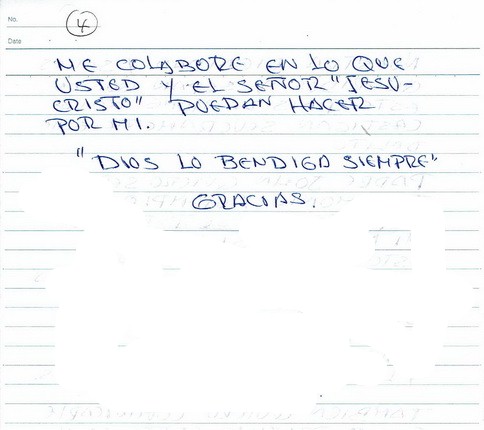 No.
4
Date
ME COLABORE EN LO QUE
USTED Y EL SEÑOR "JESU-
CRISTO" PUEDAN HACER
POR MI.
"DIOS LO BENDIGA SIEMPRE"
GRACIAS.